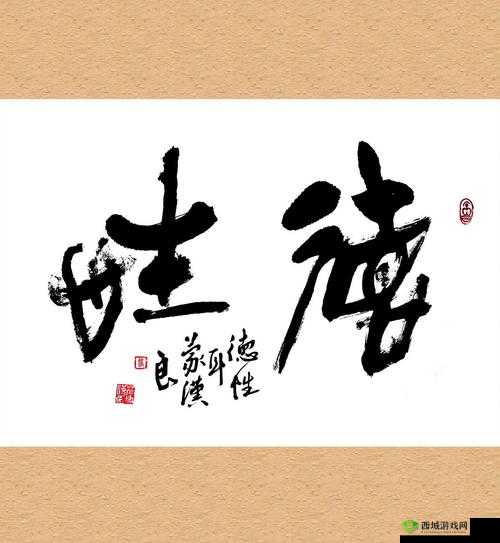 德性
德性
耳
蒙漢
良
西城游戏网